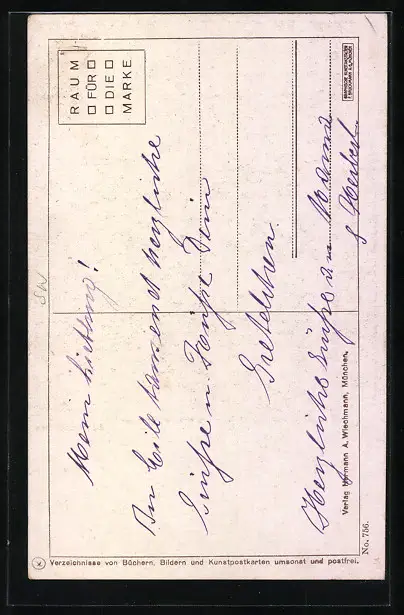 RAUM
FÜR
DIE
MARKE
Mein Liebling!
In Eile tausend herzliche
Grüße u. Küße Dein
Gretelchen
Herzliche Grüße v. Mama
& Herbert.
Verlag Hermann A. Wiechmann, München.
No. 756.
Verzeichnisse von Büchern, Bildern und Kunstpostkarten umsonst und postfrei.